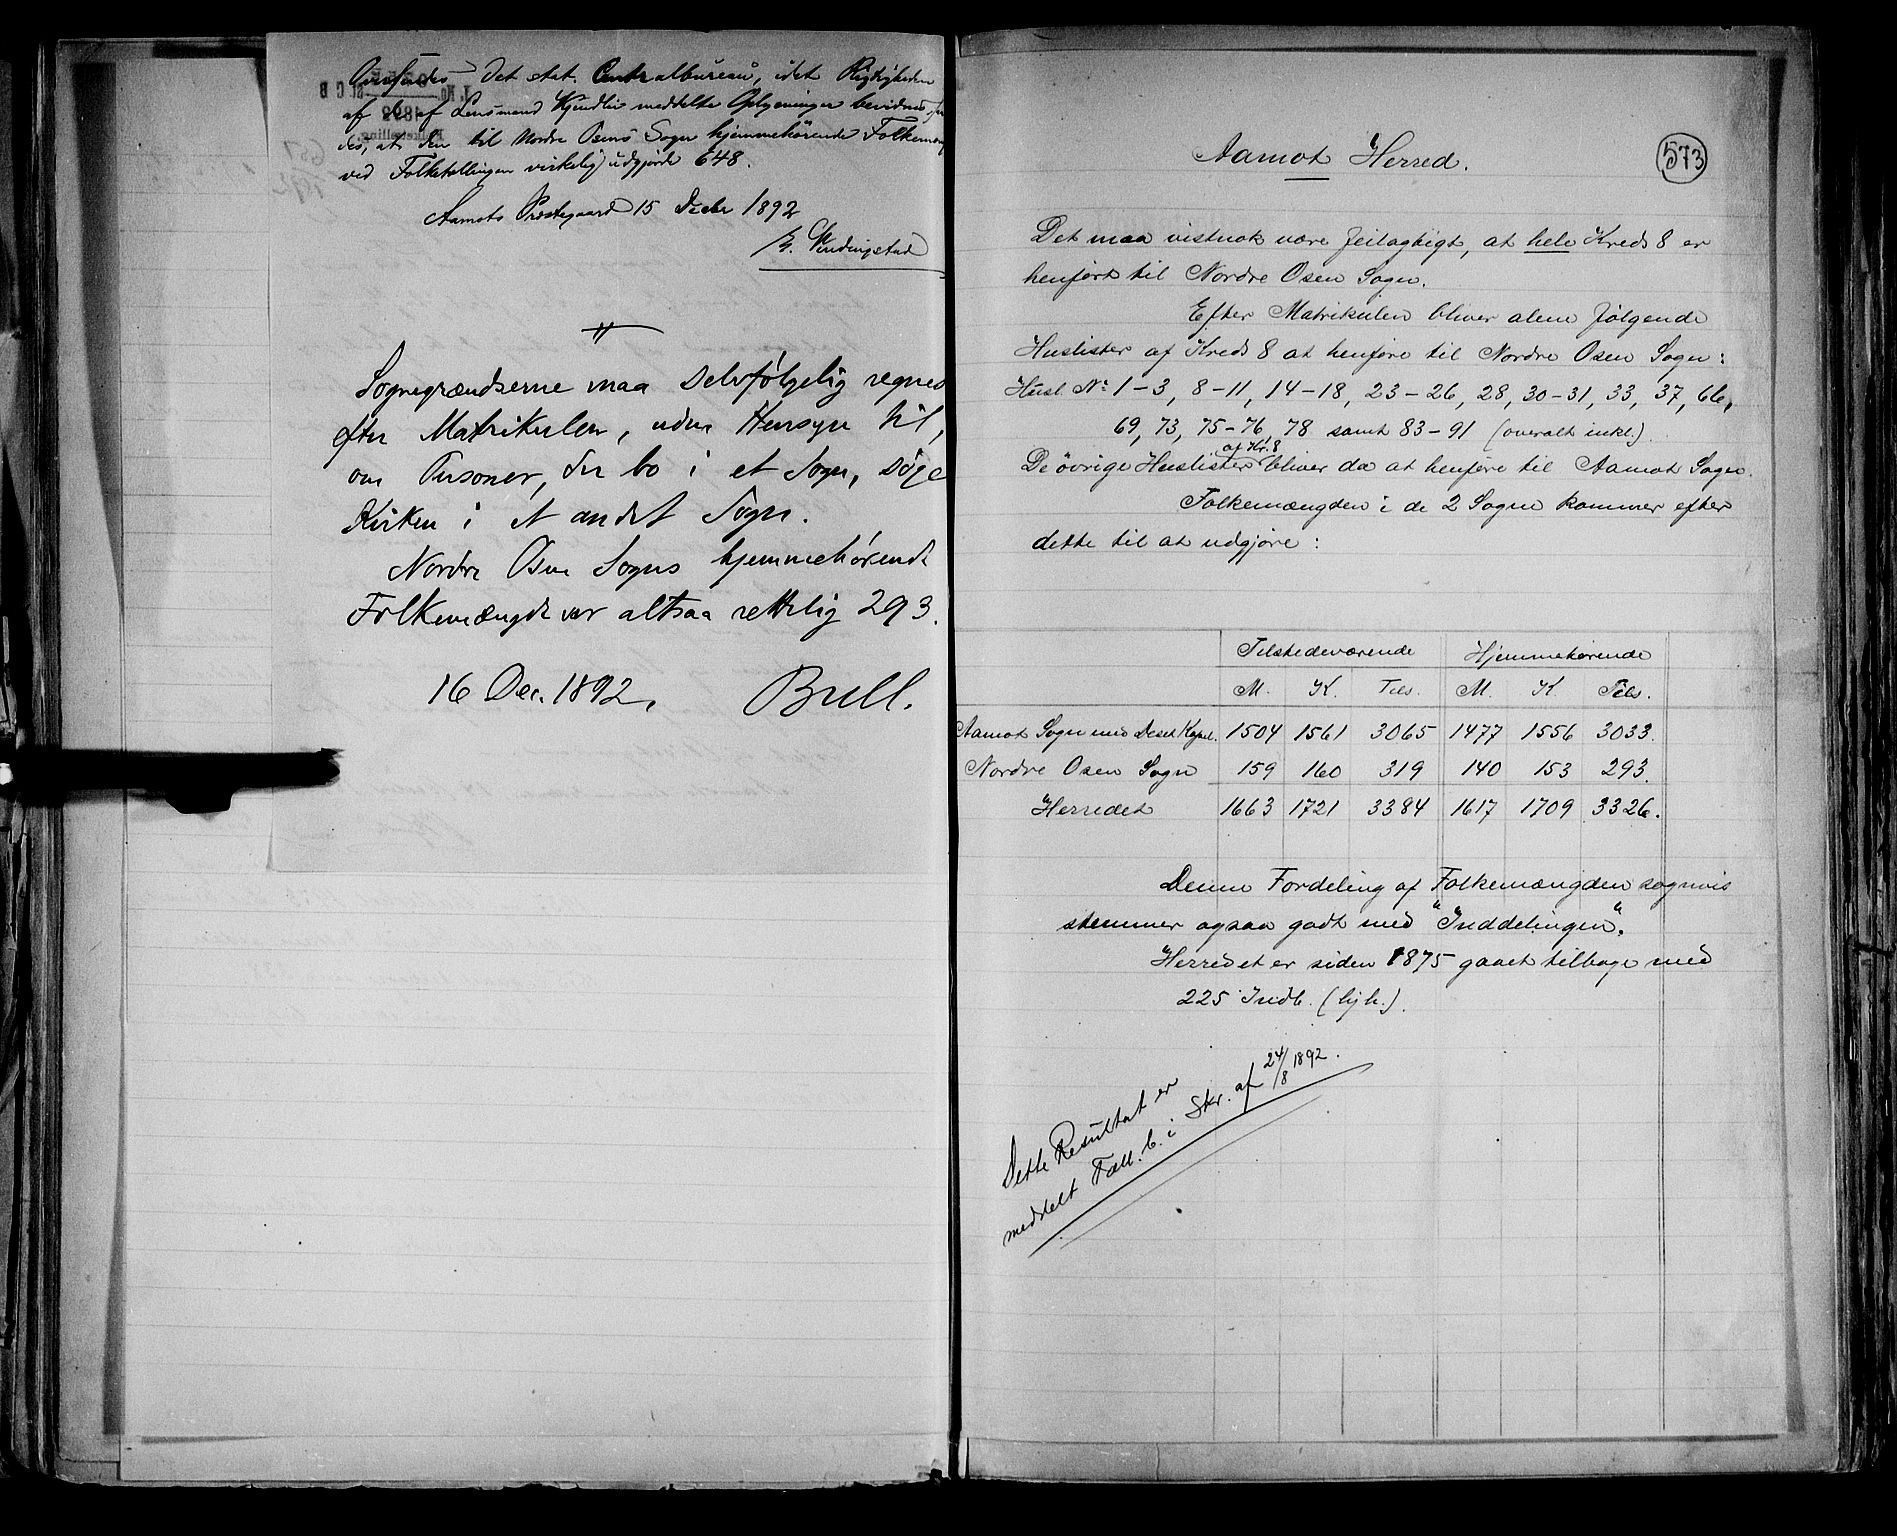 Oversendes det stat. Centralbureau, idet Rigtigheden
af de af Lensmand Kjendlie meddelte Oplysninger bevidnes,
des, at den til Nordre Osens Sogn hjemmehörende Folkemæng
ved Folketællingen virkelig udgjorde 648.
Aamots Præstegaard 15 Decbr 1892
Sognegrændserne maa selvfølgelig regnes
efter Matrikulen, uden Hensyn til,
om Personer, der bo i et Sogn, søge
Kirken i et andet Sogn.
Nordre Osen Sogns hjemmehørende
Folkemængde var altsaa rettelig 293.
16 Dec. 1892. Bull.
573
Aamot Herred.
Det maa vistnok være feilagtigt, at hele Kreds 8 er
henført til Nordre Osen Sogn.
Efter Matrikulen bliver alene følgende
Huslister af Kreds 8 at henføre til Nordre Osen Sogn:
Husl. No 1-3, 8-11, 14-18, 23-26, 28, 30-31, 33, 37, 66,
69, 73, 75-76, 78 samt 83-91 (overalt inkl.).
af Kr. 8
De øvrige Huslister bliver da at henføre til Aamot Sogn.
Folkemængden i de 2 Sogne kommer efter
dette til at udgjøre:
Tilstedeværende Hjemmehørende
M. K. Tils. M. K. Tils.
Aamot Sogn med Deset Kapel. 1504 1561 3065 1477 1556 3033.
Nordre Osen Sogn 159 160 319 140 153 293.
Herredet 1663 1721 3384 1617 1709 3326.
Denne Fordeling af Folkemængden sognvis
stemmer ogsaa godt med "Inddelingen".
Herredet er siden 1875 gaaet tilbage med
225 Indb. (hjh.).
Dette Resultat er
meddelt Fæll. b. i Skr. af 24/8 1892.